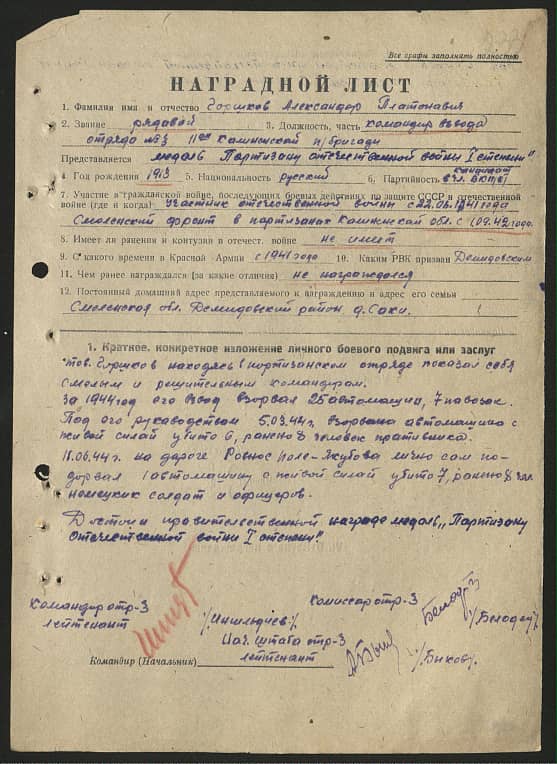 Все графы заполнять полностью
НАГРАДНОЙ ЛИСТ
1. Фамилия имя и отчество Горшков Александр Платонавич
2. Звание рядавой 3. Должность, часть командир взвода
отряда №3 11ой Калининской п/бригады
Представляется медаль Партизану отечественной войны I степени"
4. Год рождения 1913 5. Национальность русский 6. Партийность кандидат
в чл. ВКП(б)
7. Участие в гражданской войне, последующих боевых действиях по защите СССР и отечественной
войне (где и когда) Участник отечественной войны с 22.06.1941 года
Смоленский фронт в партизанах Калининской обл. с 09.42 года.
8. Имеет ли ранения и контузии в отечест. войне не имеет
9. С какого времени в Красной Армии с 1941 года 10. Каким РВК призван Демидовским
11. Чем ранее награждался (за какие отличия) не награждался
12. Постоянный домашний адрес представляемого к награждению и адрес его семьи
Смоленская обл. Демидовский район д. Саки.
1. Краткое, конкретное изложение личного боевого подвига или заслуг
тов. Горшков находясь в партизанском отряде показал себя
смелым и решительным командиром.
За 1944 год его взвод взорвал 25 автомашин, 7 павозок.
Под его рукаводством 5.03.44 г. взорвана автомашина с
живой силай убито 6, ранено 8 человек пративника.
11.06.44 г. на дороге Ровное поле-Якубова лично сам по-
дорвал 1 автомашину с живой силай убито 7, ранено 8
немецких солдат и офицеров.
Достоин правителественной награде медаль „Партизану
отечественной войны I степени"
Командир отр-3
лейтенант
Комиссар отр-3
/Белодед/
Нач. штаба отр-3
лейтенант
Командир (Начальник)
/Быков/.